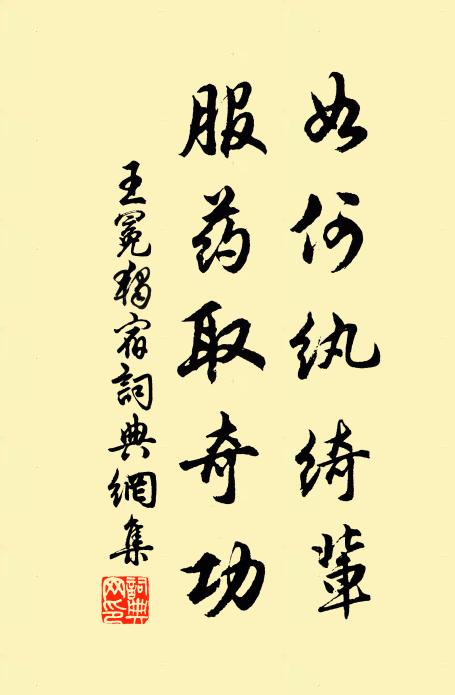 如何纨绮輩
服药取奇功
王冕獨宿詞典網集
詞典网印